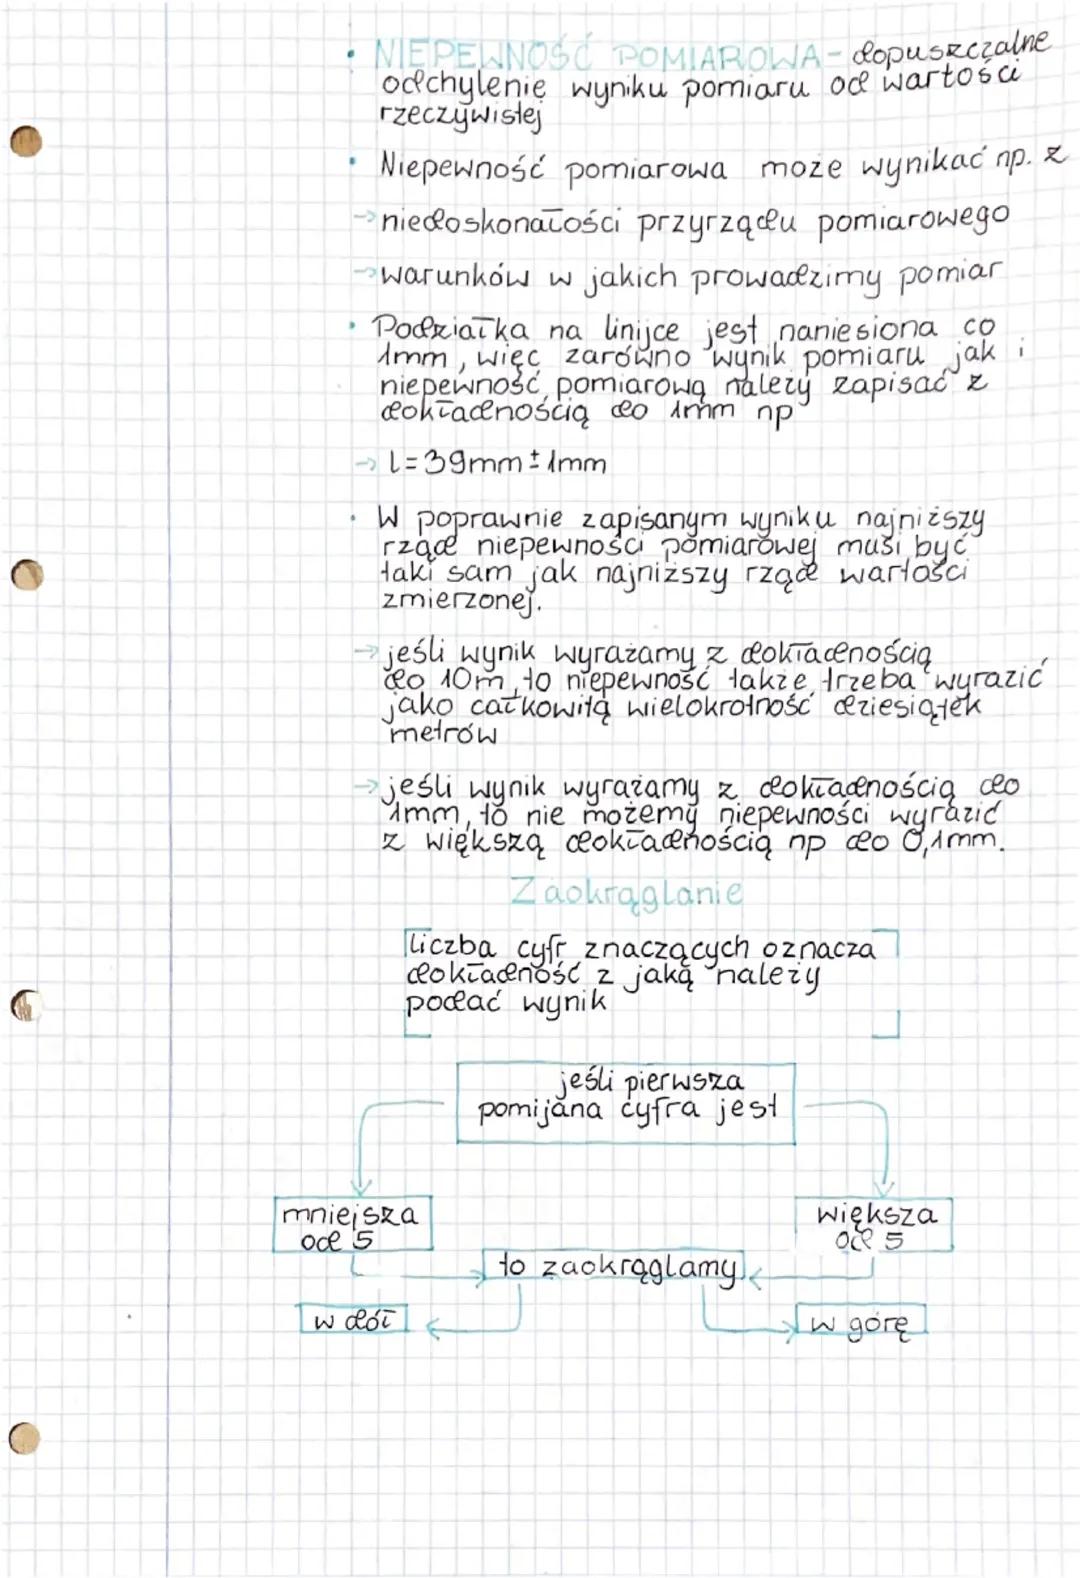 • NIEPEWNOŚĆ POMIAROWA - dopuszczalne
odchylenie wyniku pomiaru od wartości
rzeczywistej
• Niepewność pomiarowa może wynikać np. z
→ niedoskonałości przyrządu pomiarowego
→ warunków w jakich prowadzimy pomiar
• Podziałka na linijce jest naniesiona co
1mm, więc zarówno wynik pomiaru jak i
niepewność pomiarową należy zapisać z
dokładnością do 1mm np
→ l=39mm±1mm
• W poprawnie zapisanym wyniku najniższy
rząd niepewności pomiarowej musi być
taki sam jak najniższy rząd wartości
zmierzonej.
→ jeśli wynik wyrażamy z dokładnością
do 10m, to niepewność także trzeba wyrazić
jako całkowitą wielokrotność dziesiątek
metrów
→ jeśli wynik wyrażamy z dokładnością do
1mm, to nie możemy niepewności wyrazić
z większą dokładnością np do 0,1mm.
Zaokrąglanie
liczba cyfr znaczących oznacza
dokładność z jaką należy
podać wynik
jeśli pierwsza
pomijana cyfra jest
mniejsza
od 5
większa
od 5
to zaokrąglamy
w dół
w górę